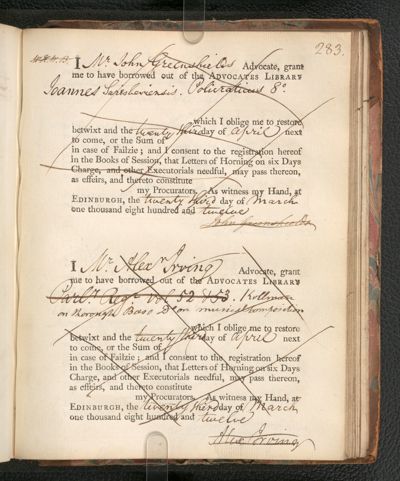 283.
I Mr. John Greenshields Advocate, grant
me to have borrowed out of the ADVOCATES LIBRARY
Joannes Sarisberiensis. Policraticus 8o
which I oblige me to restore
betwixt and the twenty third day of April next
to come, or the Sum of
in case of Failzie; and I consent to the registration hereof
in the Books of Session, that Letters of Horning on six Days
Charge, and other Executorials needful, may pass thereon,
as effeirs, and thereto constitute
my Procurators. As witness my Hand, at
EDINBURGH, the twenty third day of March
one thousand eight hundred and twelve
John Greenshields
I Mr. Alexr Irving Advocate, grant
me to have borrowed out of the ADVOCATES LIBRARY
Parly. Regr. Vol 52 & 53. Kollman
on thorough Bass Do on musical composition
which I oblige me to restore
betwixt and the twenty third day of April next
to come, or the Sum of
in case of Failzie; and I consent to the registration hereof
in the Books of Session, that Letters of Horning on six Days
Charge, and other Executorials needful, may pass thereon,
as effeirs, and thereto constitute
my Procurators. As witness my Hand, at
EDINBURGH, the twenty third day of March
one thousand eight hundred and twelve
Alexr Irving